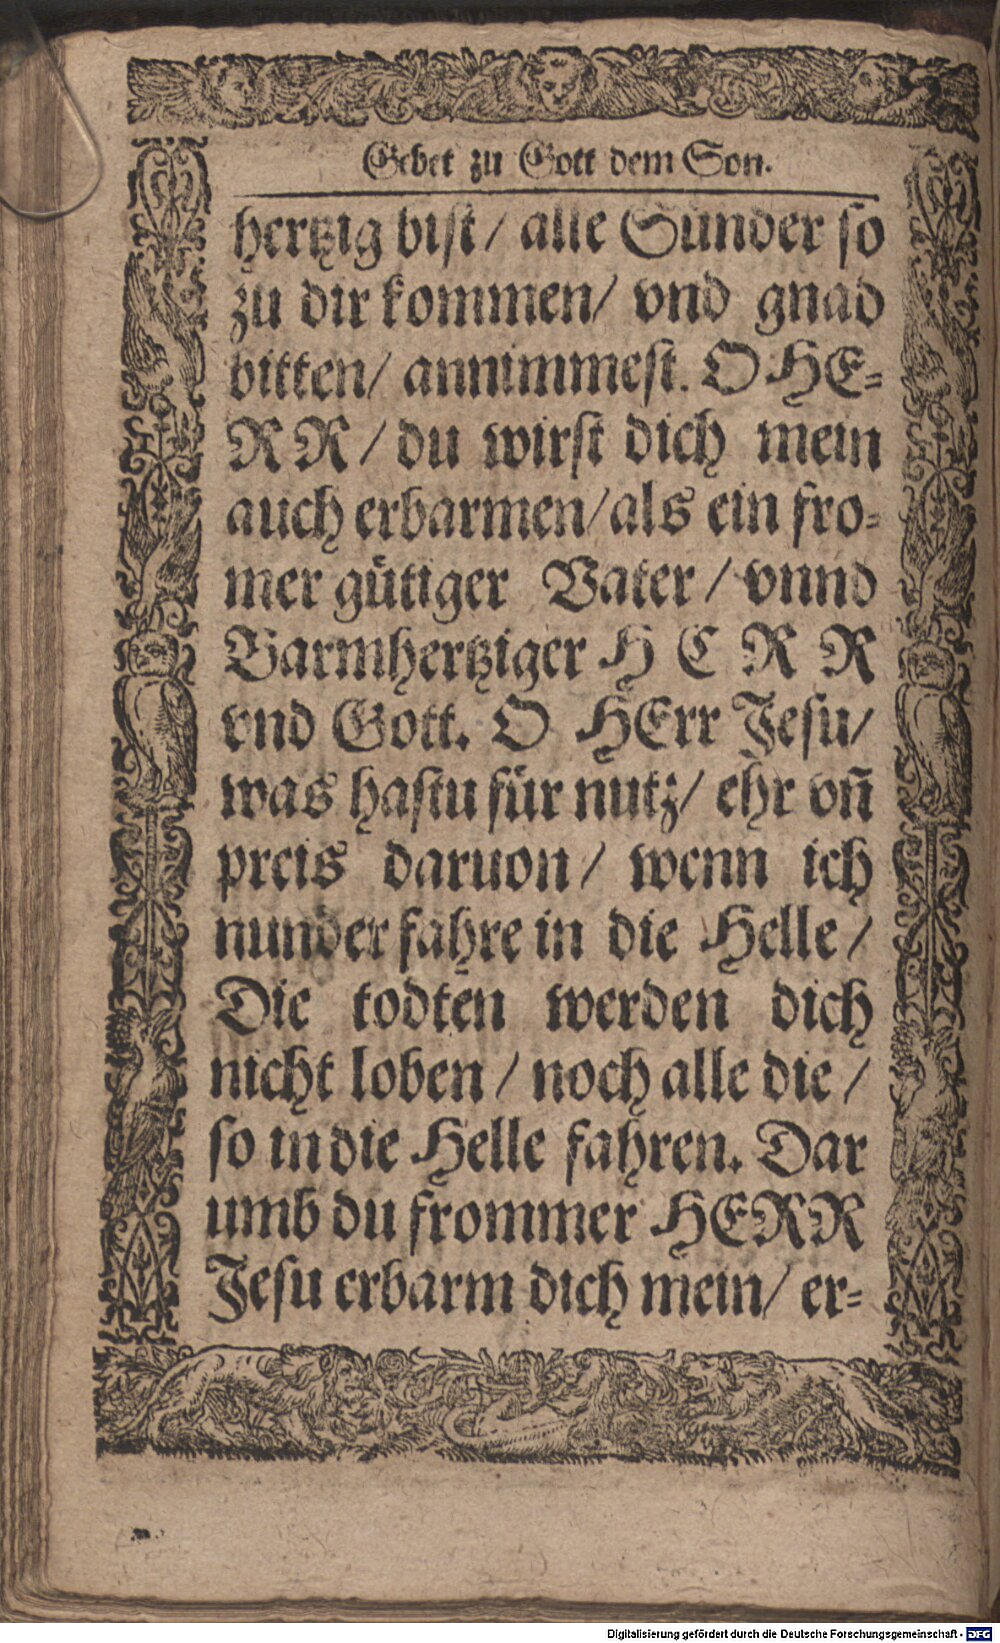 Gebet zu Gott dem Son.
hertzig bist / alle Sünder so
zu dir kommen / vnd gnad
bitten / annimmest. O HE-
RR / du wirst dich mein
auch erbarmen / als ein fro-
mer gütiger Vater / vnnd
Barmhertziger H E R R
vnd Gott. O HErr Jesu /
was hastu für nutz / ehr vñ
preis daruon / wenn ich
nunder fahre in die Helle /
Die todten werden dich
nicht loben / noch alle die /
so in die Helle fahren. Dar
umb du frommer HERR
Jesu erbarm dich mein / er-
Digitalisierung gefördert durch die Deutsche Forschungsgemeinschaft - DFG